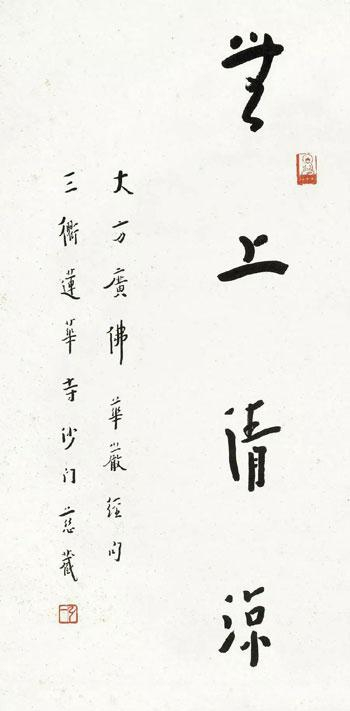 無上清涼
大方廣佛華嚴經句
三衢蓮華寺沙門慈藏